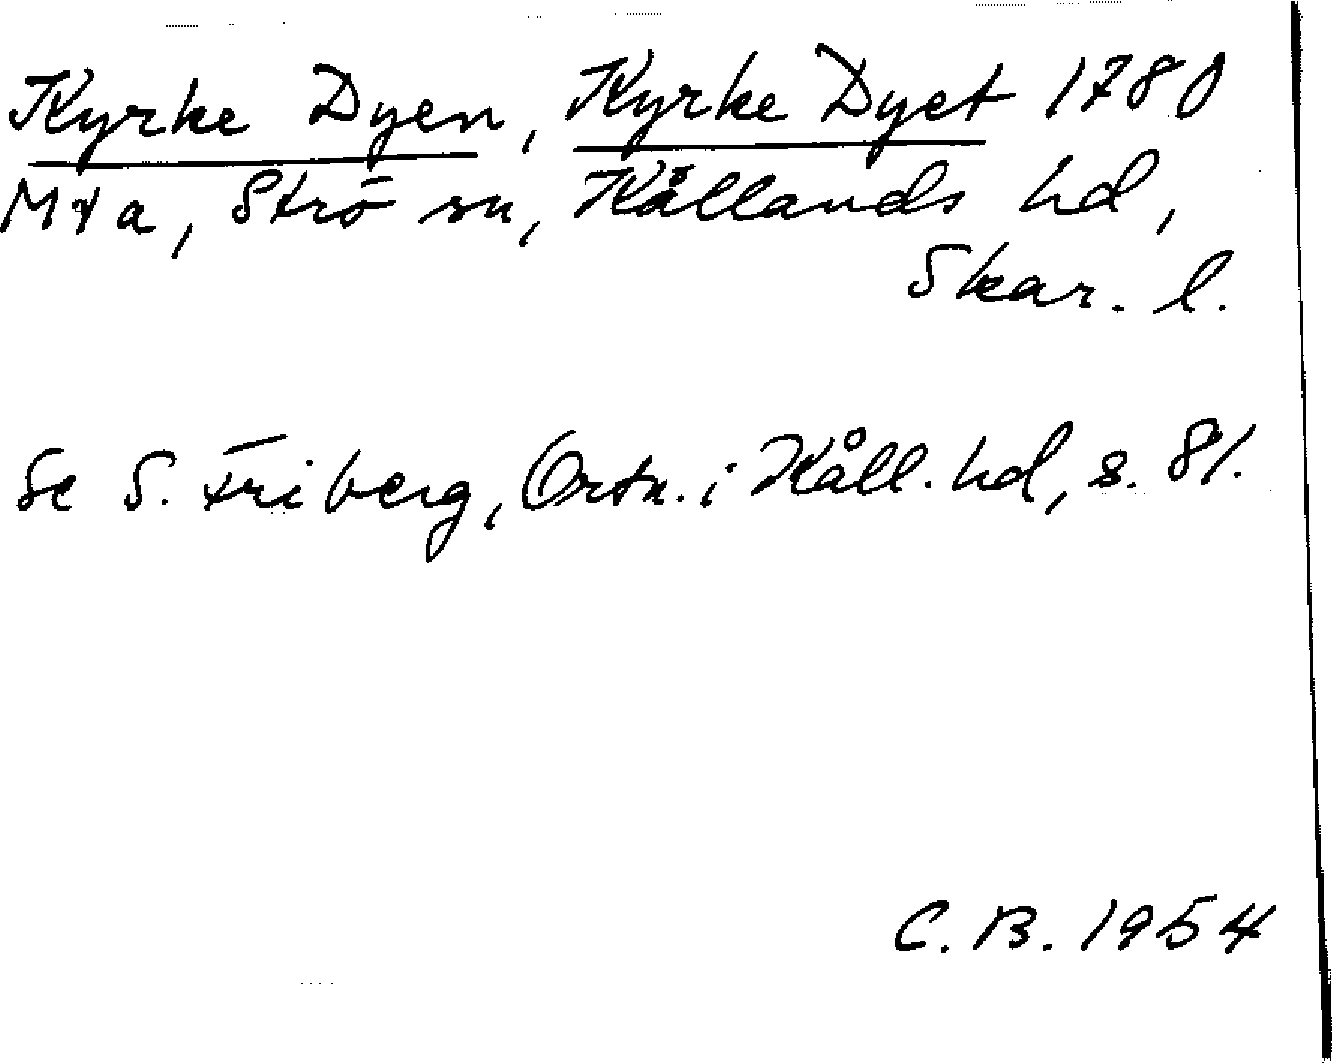 Kyrke Dyen, Kyrke Dyet 1780
Mta, Strö sn, Kållands hd,
Skar. l.
Se S. Friberg, Ortn. i Kåll. hd, s. 81.
C. B. 1954